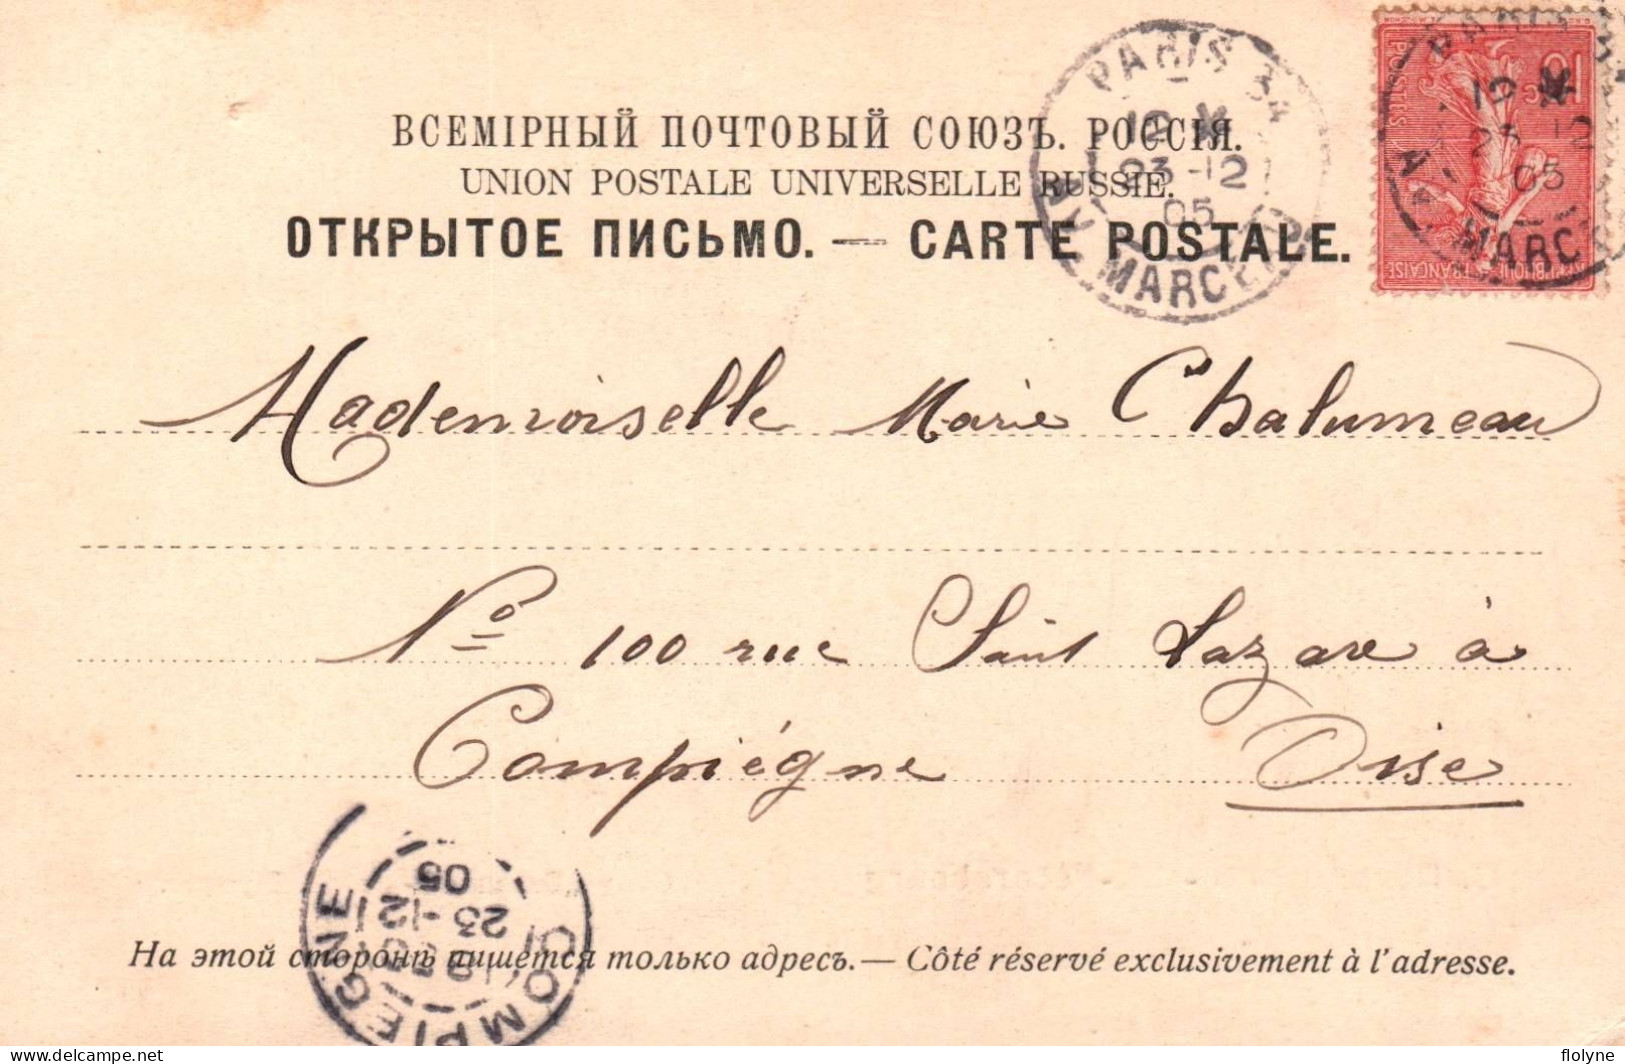 ВСЕМІРНЫЙ ПОЧТОВЫЙ СОЮЗЪ. РОССІЯ.
UNION POSTALE UNIVERSELLE RUSSIE.
ОТКРЫТОЕ ПИСЬМО. — CARTE POSTALE.
PARIS 34
12
23 -12
05
MARC
10 c.
POSTES
REPUBLIQUE FRANÇAISE
PARIS
12
23 -12
05
MARC
Mademoiselle Marie Chalumeau
Nº 100 rue Saint Lazare à
Compiégne Oise
COMPIEGNE
23 -12
05
На этой сторонѣ пишется только адресъ. — Côté réservé exclusivement à l'adresse.
delcampe.net
flolyne